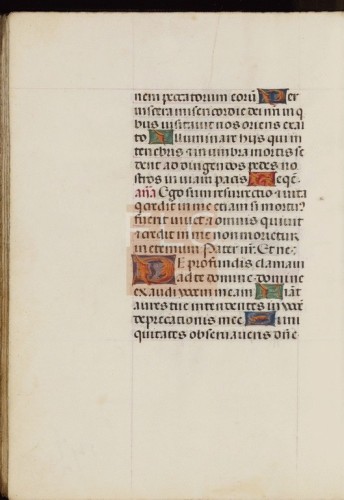 nem peccatorum eorũ Per
viscera misericordie dei nr̃i in q̃
bus visitavit nos oriens ex al
to Illuminare hijs qui in
tenebris ⁊ in umbra mortis se
dent ad dirigendos pedes no
stros in viam pacis Reqẽ
añã Ego sum resurrectio ⁊ vita
q̃ credit in me etiam si mortu⁹
fuerit vivet ⁊ omnis qui vivit
⁊ credit in me non morietur
in eternum Pater nr̃. Et ne
De profundis clamavi
ad te domine domine
exaudi vocem meam Fiãt
aures tue intendentes in vocẽ
deprecationis mee Si ini
quitates observaveris dñe